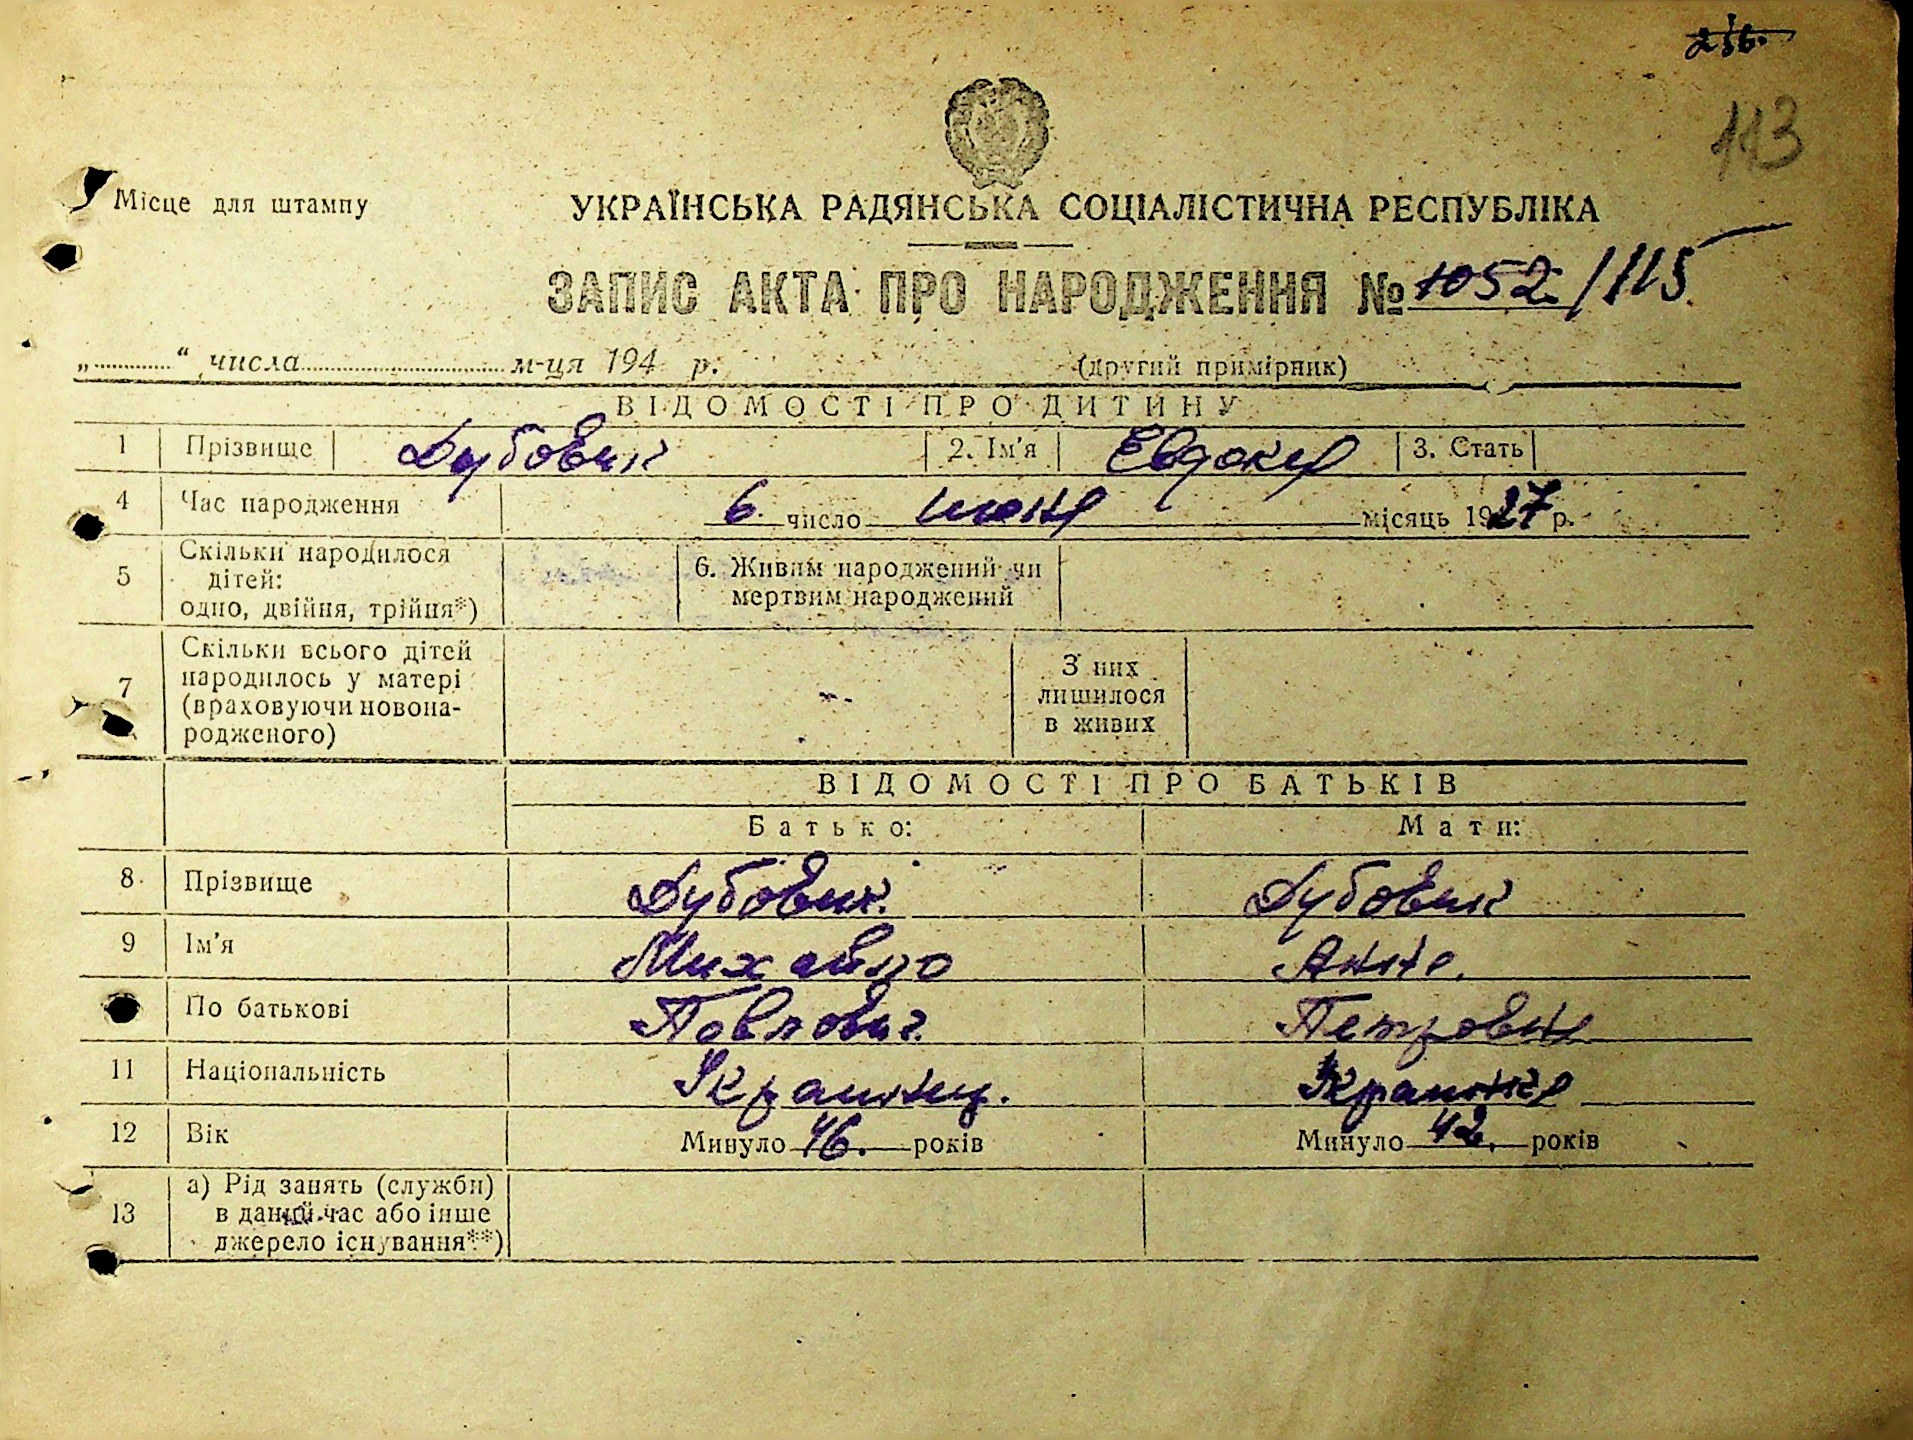 236.
113
Місце для штампу
УКРАЇНСЬКА РАДЯНСЬКА СОЦІАЛІСТИЧНА РЕСПУБЛІКА
ЗАПИС АКТА ПРО НАРОДЖЕННЯ № 1052/115
„............“ числа................................ м-ця 194 р. (другий примірник)
ВІДОМОСТІ ПРО ДИТИНУ
1 Прізвище Дубовик 2. Ім'я Евдокия 3. Стать
4 Час народження 6. число июня місяць 1927 р.
5 Скільки народилося дітей: одно, двійня, трійня*) 6. Живим народжений чи мертвим народжений
7 Скільки всього дітей народилось у матері (враховуючи новонародженого) З них лишилося в живих
ВІДОМОСТІ ПРО БАТЬКІВ
Батько: Мати:
8 Прізвище Дубовик. Дубовик
9 Ім'я Михайло Анна.
По батькові Павлович. Петровна
11 Національність Украинец. Украинка
12 Вік Минуло 46. років Минуло 42. років
13 а) Рід занять (служби) в даний час або інше джерело існування**)